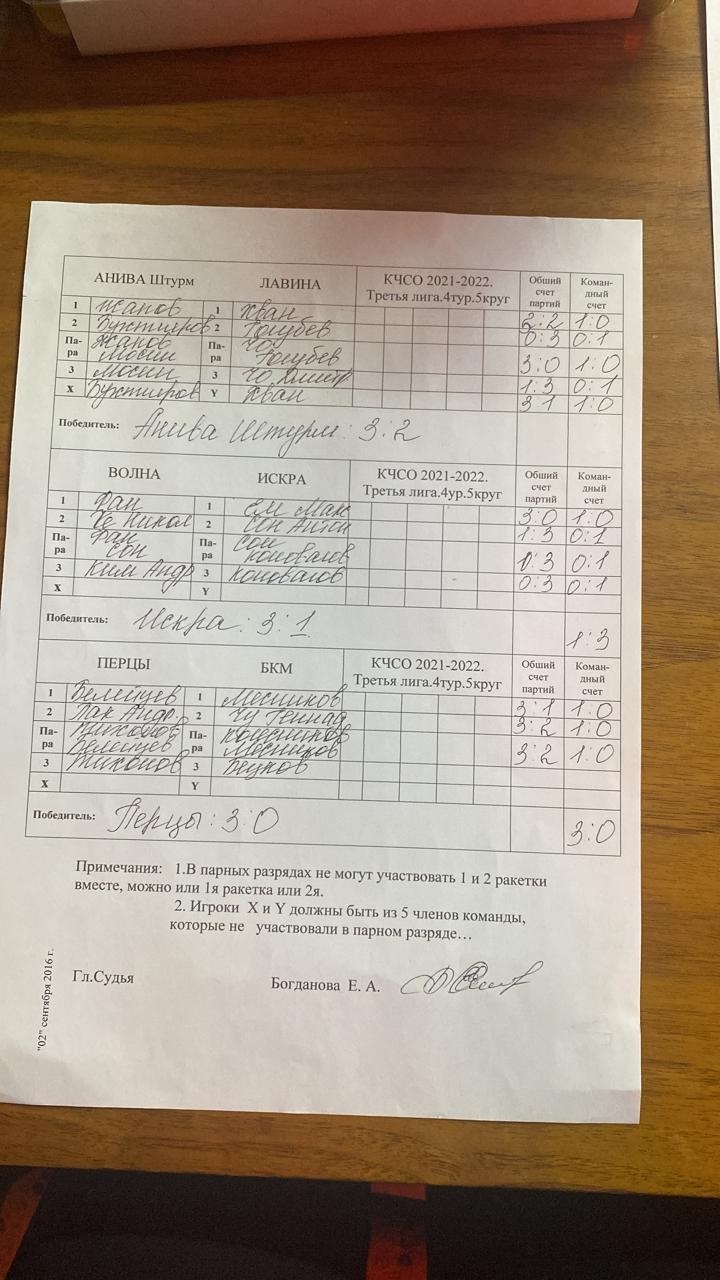 АНИВА Штурм ЛАВИНА КЧСО 2021-2022. Третья лига.4тур.5круг Общий счет партий Коман-дный счет
1 Жапов 1 Хван 1:0
2 2 Голубев 0:3 0:1
Па-ра Жапов Мосин Па-ра Чо Голубев 3:0 1:0
3 Мосин 3 Чо 1:3 0:1
X Y Хван 3 1 1:0
Победитель: Анива Штурм: 3:2
ВОЛНА ИСКРА КЧСО 2021-2022. Третья лига.4тур.5круг Общий счет партий Коман-дный счет
1 Фан 1 Ем Мак 3:0 1:0
2 Хе Никол 2 Сон Антон 1:3 0:1
Па-ра Фан Сон Па-ра Сон Коновалов 0:1
3 Ким Андр 3 Коновалов 0:3 0:1
X Y
Победитель: Искра: 3:1
1:3
ПЕРЦЫ БКМ КЧСО 2021-2022. Третья лига.4тур.5круг Общий счет партий Коман-дный счет
1 1 3:1 1:0
2 Пак Андр. 2 Чу Геннад 3:2 1:0
Па-ра Тихонов Па-ра Колесников 3:2 1:0
3 Тихонов 3 Бецков
X Y
Победитель: Перцы: 3:0
3:0
Примечания: 1.В парных разрядах не могут участвовать 1 и 2 ракетки
вместе, можно или 1я ракетка или 2я.
2. Игроки X и Y должны быть из 5 членов команды,
которые не участвовали в парном разряде…
Гл.Судья Богданова Е. А.
"02" сентября 2016 г.